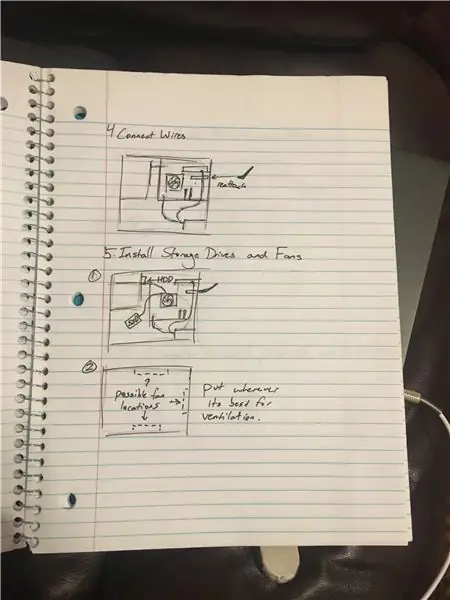 4 Connect Wires
reattach
5. Install Storage Drives and Fans
①
HDD
SSD
②
possible fan
locations
put wherever
its best for
ventilation.